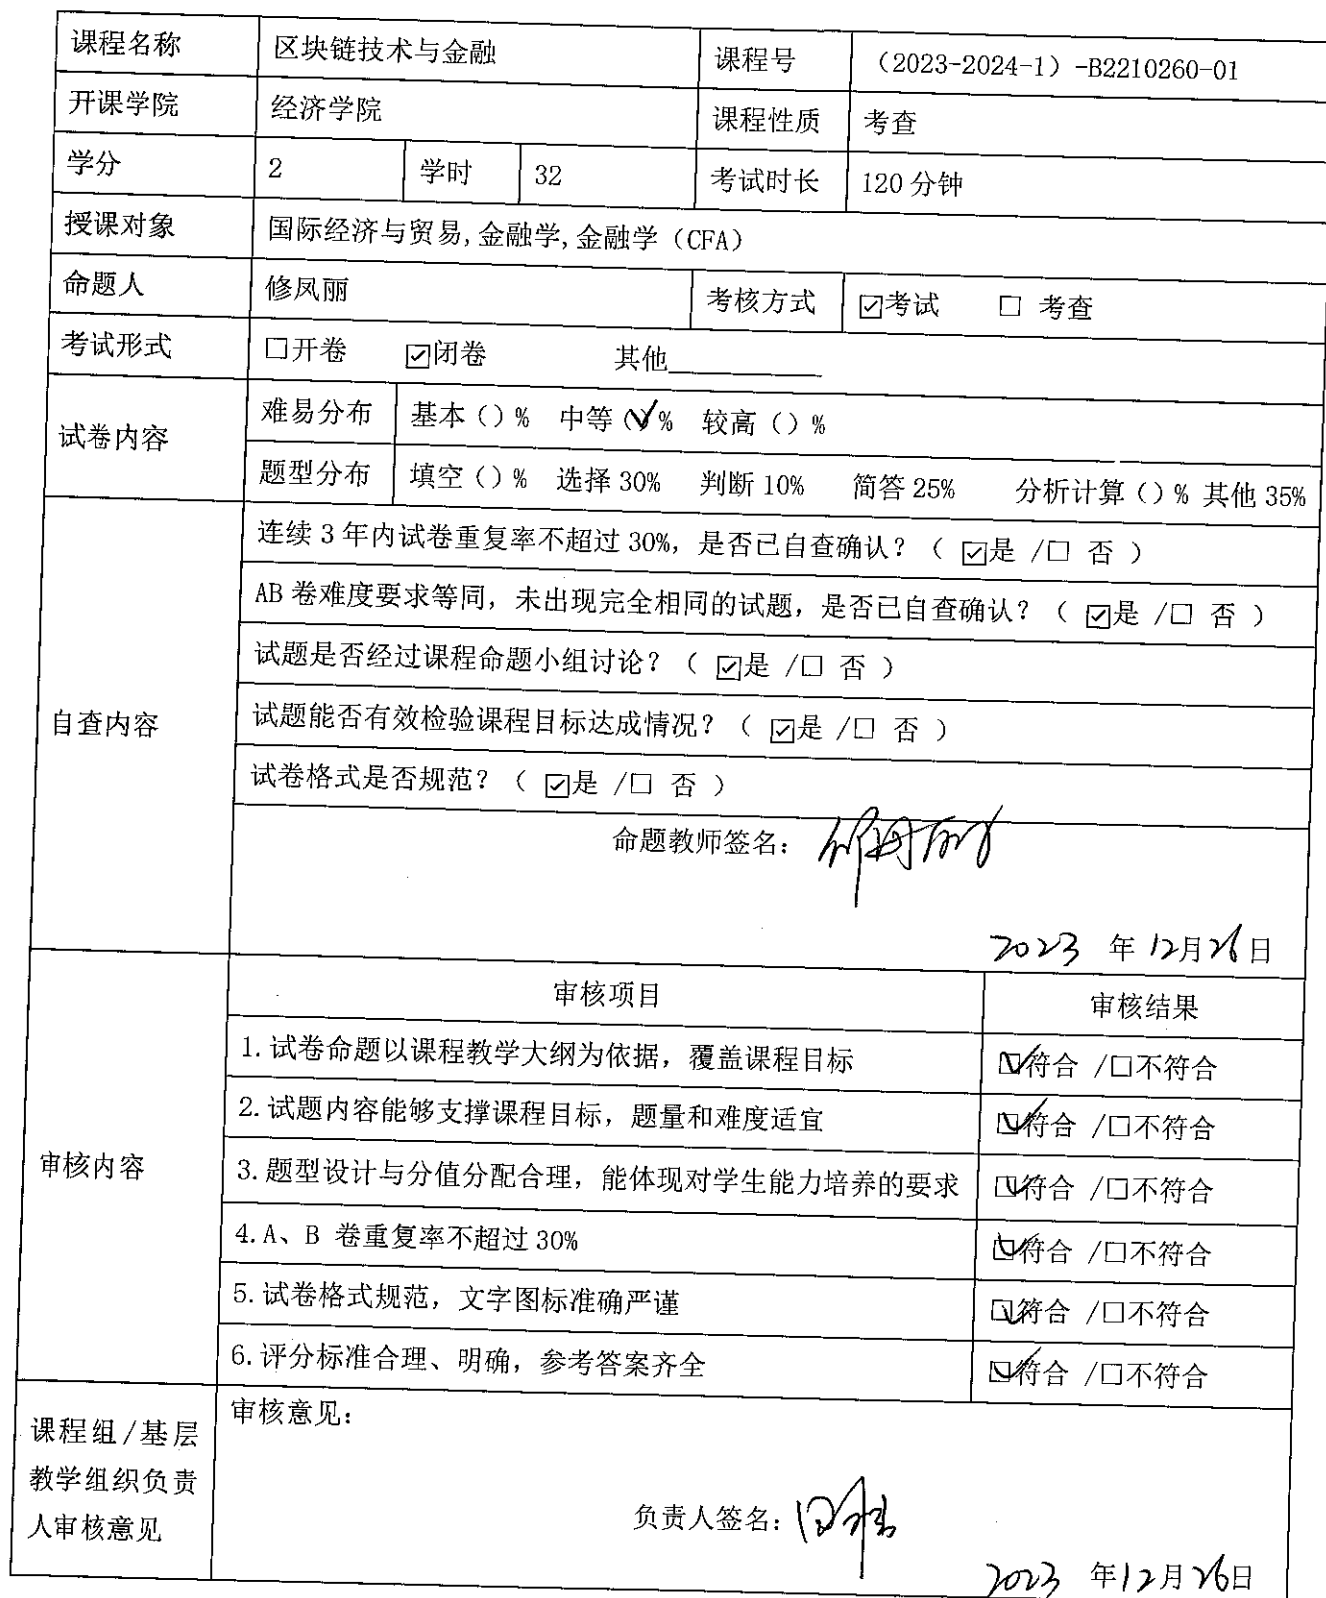 课程名称 区块链技术与金融 课程号 （2023-2024-1）-B2210260-01
开课学院 经济学院 课程性质 考查
学分 2 学时 32 考试时长 120分钟
授课对象 国际经济与贸易,金融学,金融学（CFA）
命题人 修凤丽 考核方式 ☑考试 □ 考查
考试形式 □开卷 ☑闭卷 其他__________
试卷内容 难易分布 基本（）% 中等（✓% 较高（）%
题型分布 填空（）% 选择 30% 判断 10% 简答 25% 分析计算（）% 其他 35%
自查内容
连续 3 年内试卷重复率不超过 30%，是否已自查确认？（ ☑是 /□ 否 ）
AB 卷难度要求等同，未出现完全相同的试题，是否已自查确认？（ ☑是 /□ 否 ）
试题是否经过课程命题小组讨论？（ ☑是 /□ 否 ）
试题能否有效检验课程目标达成情况？（ ☑是 /□ 否 ）
试卷格式是否规范？（ ☑是 /□ 否 ）
命题教师签名：
2023 年 12月26日
审核内容
审核项目 审核结果
1.试卷命题以课程教学大纲为依据，覆盖课程目标 ☑符合 /□不符合
2.试题内容能够支撑课程目标，题量和难度适宜 ☑符合 /□不符合
3.题型设计与分值分配合理，能体现对学生能力培养的要求 ☑符合 /□不符合
4.A、B 卷重复率不超过 30% ☑符合 /□不符合
5.试卷格式规范，文字图标准确严谨 ☑符合 /□不符合
6.评分标准合理、明确，参考答案齐全 ☑符合 /□不符合
课程组/基层
教学组织负责
人审核意见
审核意见：
负责人签名：
2023 年12月26日